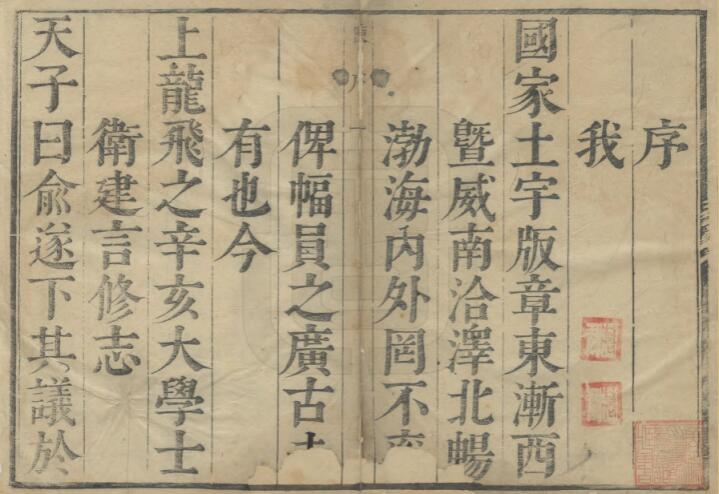 序
我
國家土宇版章東漸西
暨威南洽澤北暢
渤海内外罔不
俾幅員之廣古
有也今
上龍飛之辛亥大學士
衛建言修志
天子曰俞遂下其議於